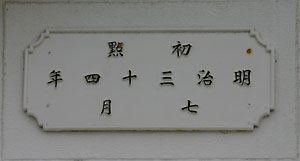 初點
明治三十四年
七月